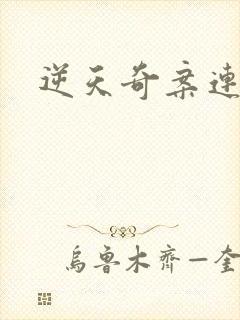 逆天奇案連
烏魯木齊一奎